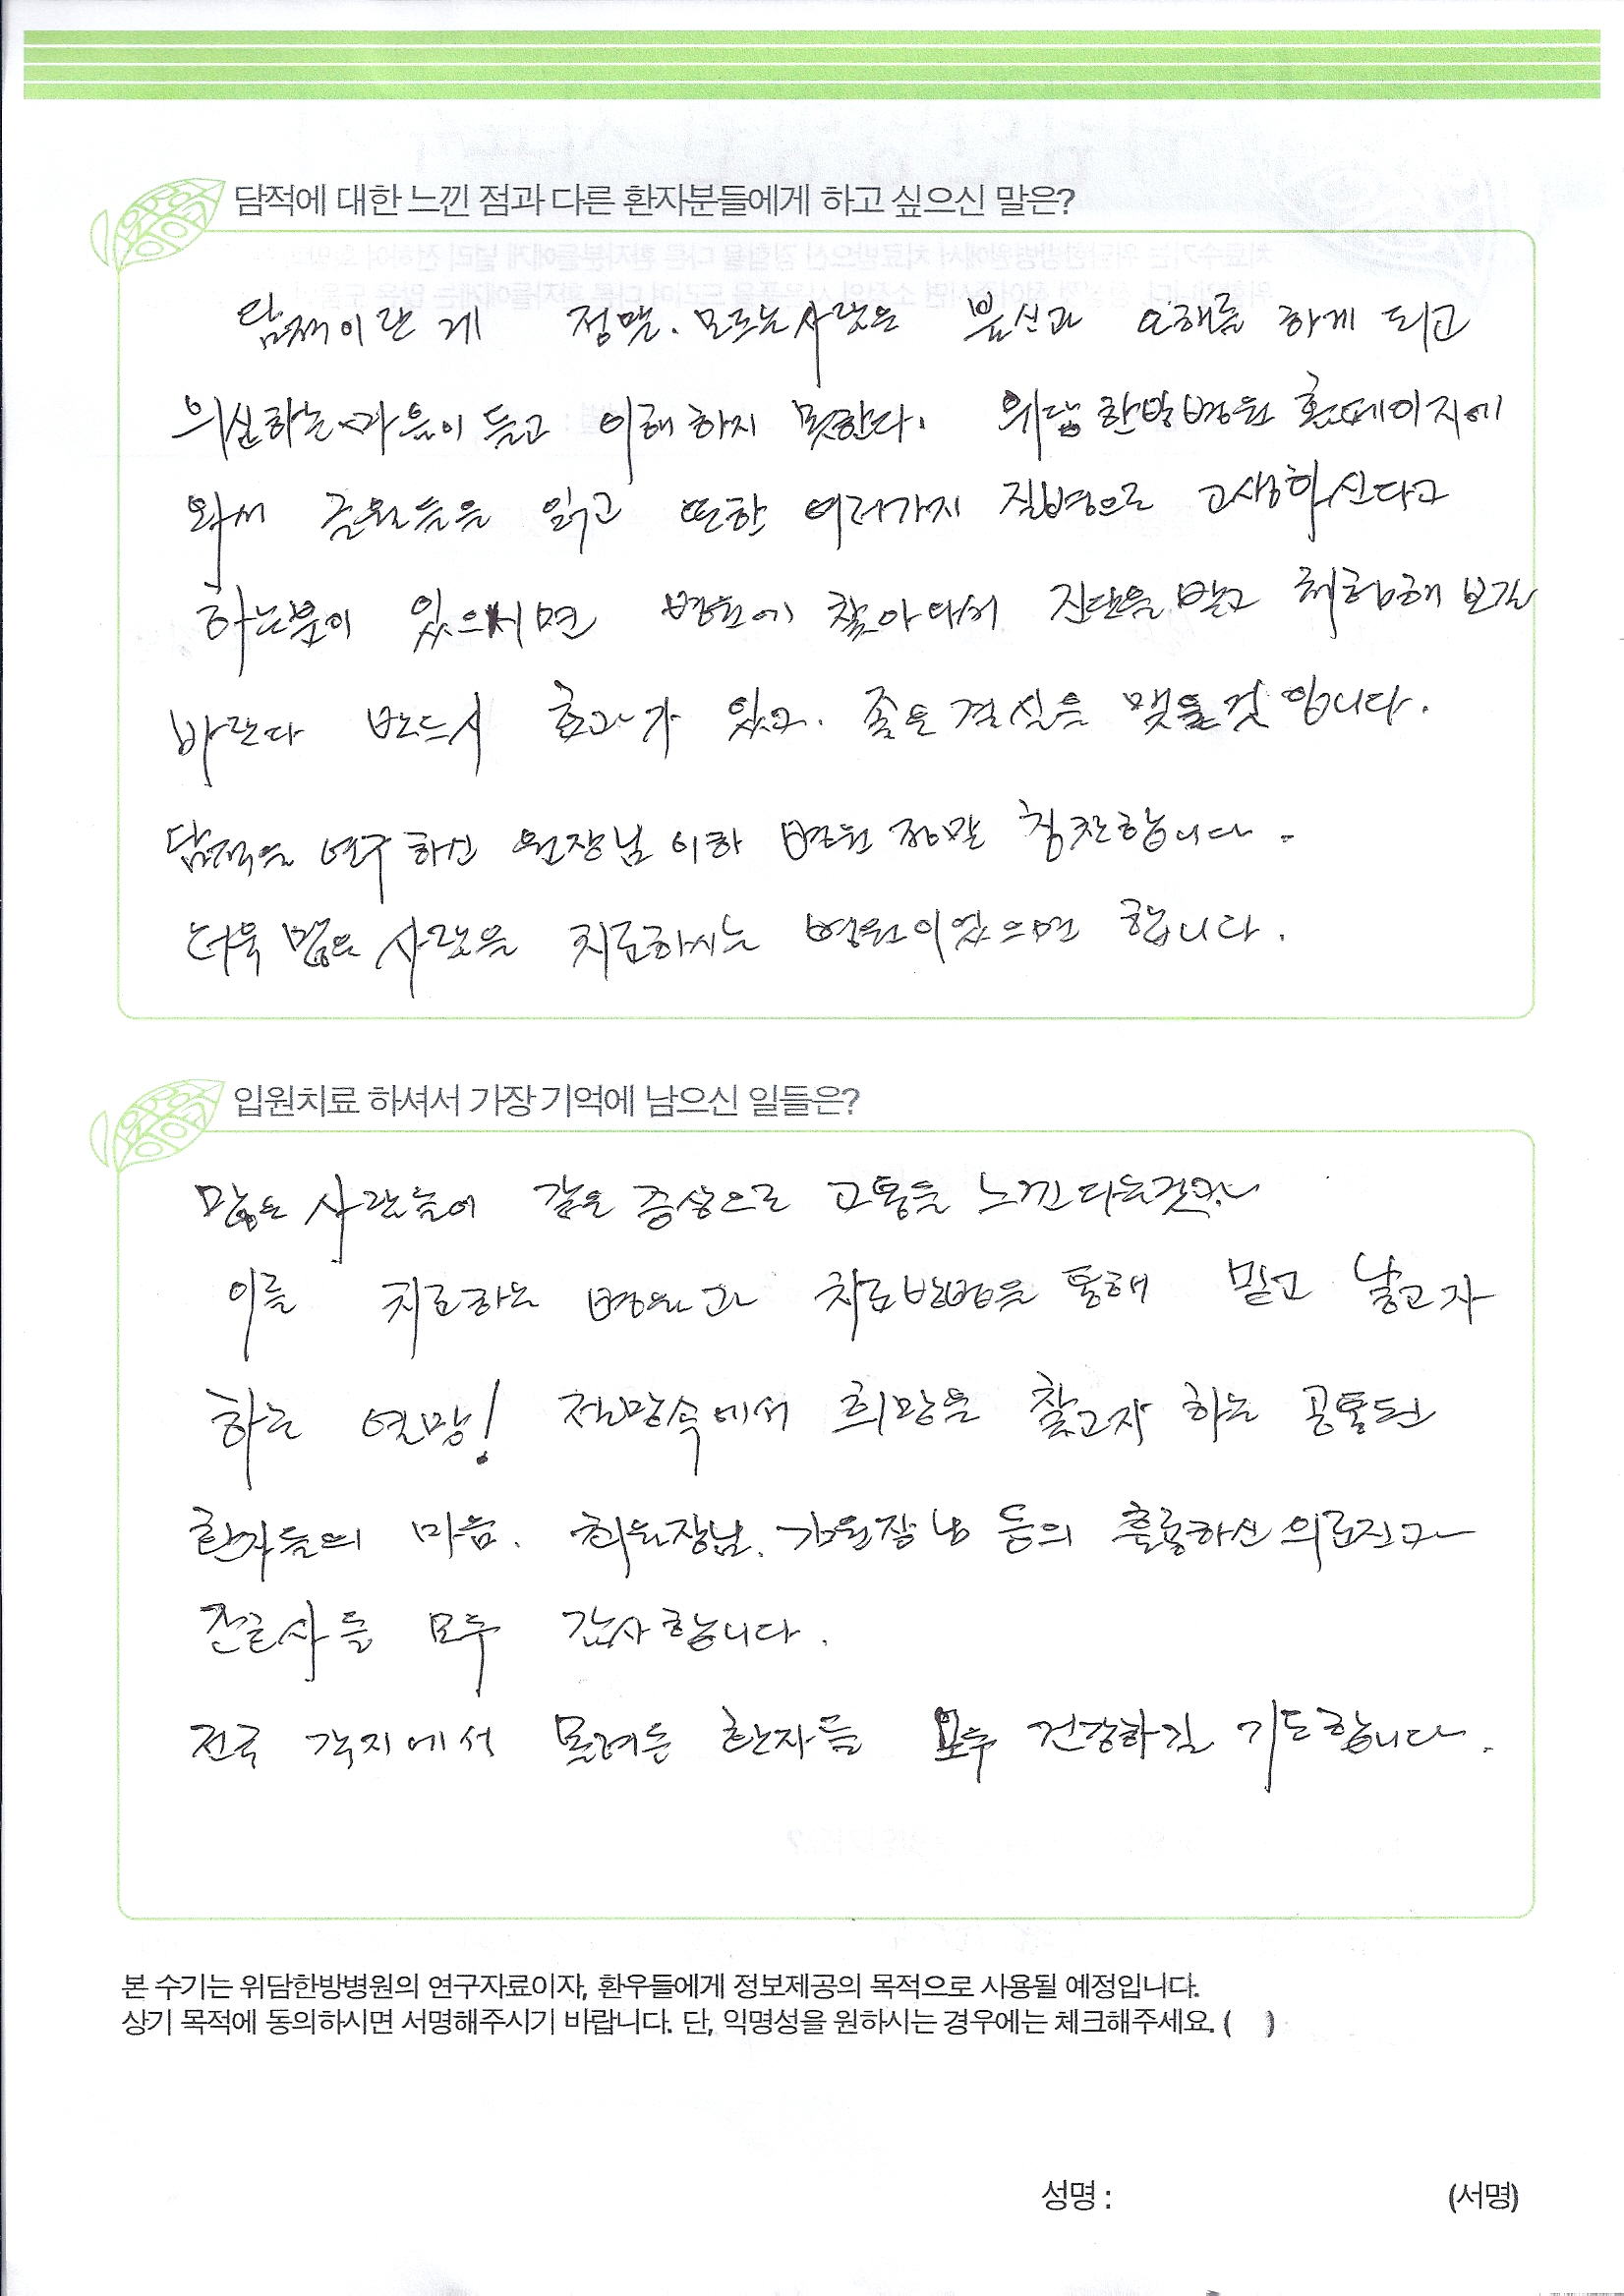 담적에 대한 느낀 점과 다른 환자분들에게 하고 싶으신 말은?
담적이란 게 정말. 모르는 사람은 불신과 오해를 하게 되고
의심하는 마음이 들고 이해하지 못한다. 위담한방병원 홈페이지에
와서 글월들을 읽고 또한 여러가지 질병으로 고생하신다고
하는분이 있으시면 병원에 찾아와서 진단을 받고 체험해 보길
바란다 반드시 효과가 있고. 좋은 결실을 맺을것 입니다.
담적을 연구하신 원장님 이하 병원 정말 칭찬합니다.
더욱 많은 사람을 치료하시는 병원이었으면 합니다.
입원치료 하셔서 가장 기억에 남으신 일들은?
많은 사람들이 같은 증상으로 고통을 느낀다는것과
이를 치료하는 병원과 치료방법을 통해 믿고 낳고자
하는 열망! 절망속에서 희망을 찾고자 하는 공통된
환자들의 마음. 최원장님. 강원장님 등의 훌륭하신 의료진과
간호사들 모두 감사합니다.
전국 각지에서 몰려든 환자들 모두 건강하길 기도합니다.
본 수기는 위담한방병원의 연구자료이자, 환우들에게 정보제공의 목적으로 사용될 예정입니다.
상기 목적에 동의하시면 서명해주시기 바랍니다. 단, 익명성을 원하시는 경우에는 체크해주세요. ( )
성명 : (서명)